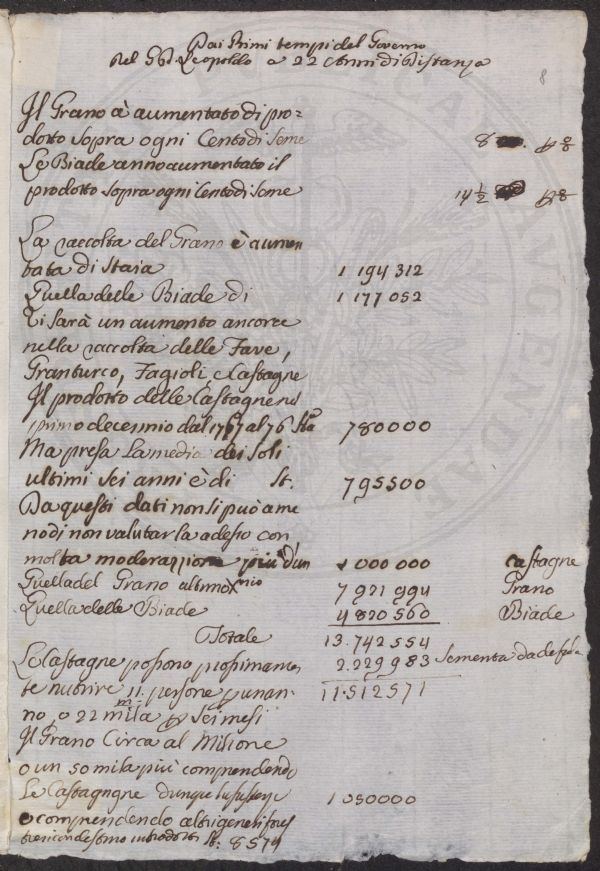 Dai Primi tempi del Governo
del GD. Leopoldo a 22 Anni di Distanza
8
Il Grano à aumentato di pro=
dotto sopra ogni Cento di seme 8
Le Biade anno aumentato il
prodotto sopra ogni Cento di seme 14 1/2
La raccolta del Grano è aumen
tata di Staia 1 194 312
Quella delle Biade di 1 177 052
Vi sarà un aumento ancora
nella raccolta delle Fave,
Granturco, Fagioli e Castagne
Il prodotto delle Castagne nel
primo decennio dal 1767 al 76 Sta 780000
Ma presa la media dei soli
ultimi sei anni è di St. 795500
Da questi dati non si può a me
no di non valutarla adesso con
molta moderazione più d'un 1 000 000 Castagne
Quella del Grano all'ultimo 7 921 994 Grano
Quella delle Biade 4 820 560 Biade
Totale 13.742 554
Le Castagne possono prossimamen 2.229 983 Sementa da
te nutrire 11 persone p un an- 11.512571
m
no, o 22 mila p sei mesi
Il Grano Circa al Milione
o un 50 mila più comprendendo
Le Castagne 1 050000
e comprendendo altri generi
St. 8574